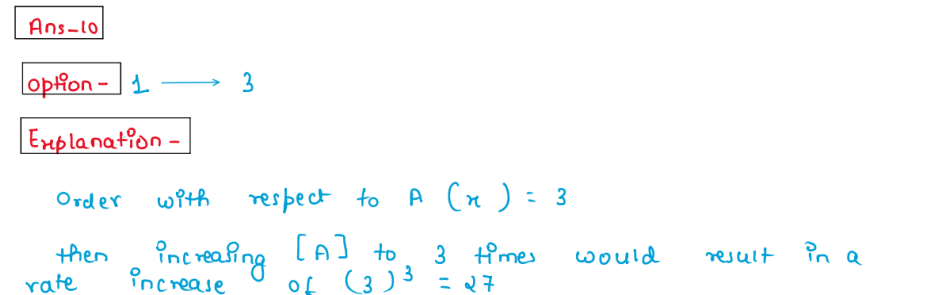 Ans-10
option- 1 ⟶ 3
Explanation-
Order with respect to A (x) = 3
then increasing [A] to 3 times would result in a
rate increase of (3)³ = 27